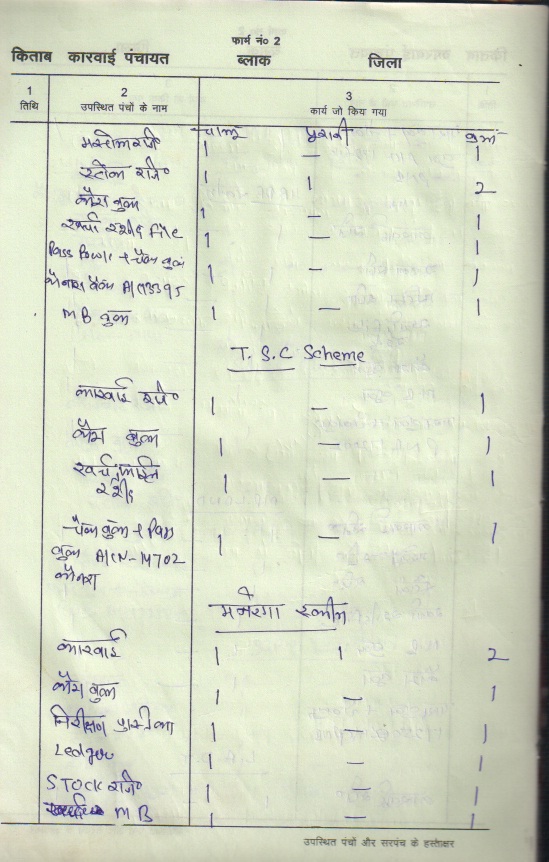 फार्म नं० 2
किताब कारवाई पंचायत ब्लाक जिला
1 2 3
तिथि उपस्थित पंचों के नाम कार्य जो किय गया
चालू पुरानी कुल
मस्ट्रोल रजि० 1 — 1
स्टोक रजि० 1 1 2
कैश बुक 1 — 1
खर्चा रशीद File 1 — 1
Pass Book + चैक बुक
केनरा बैंक A/c 1 — 1
M B बुक 1 — 1
T. S. C Scheme
कारवाई रजि० 1 — 1
कैश बुक 1 — 1
खर्च फाईल 1 — 1
रशीद
चैक बुक + Pass
बुक A/CN-14702 1 — 1
केनरा
मनरेगा स्कीम
कारवाई 1 1 2
कैश बुक 1 — 1
निरीक्षण पुस्तिका 1 — 1
Ledger 1 — 1
STOCK रजि० 1 — 1
M B 1 — 1
उपस्थित पंचों और सरपंच के हस्ताक्षर